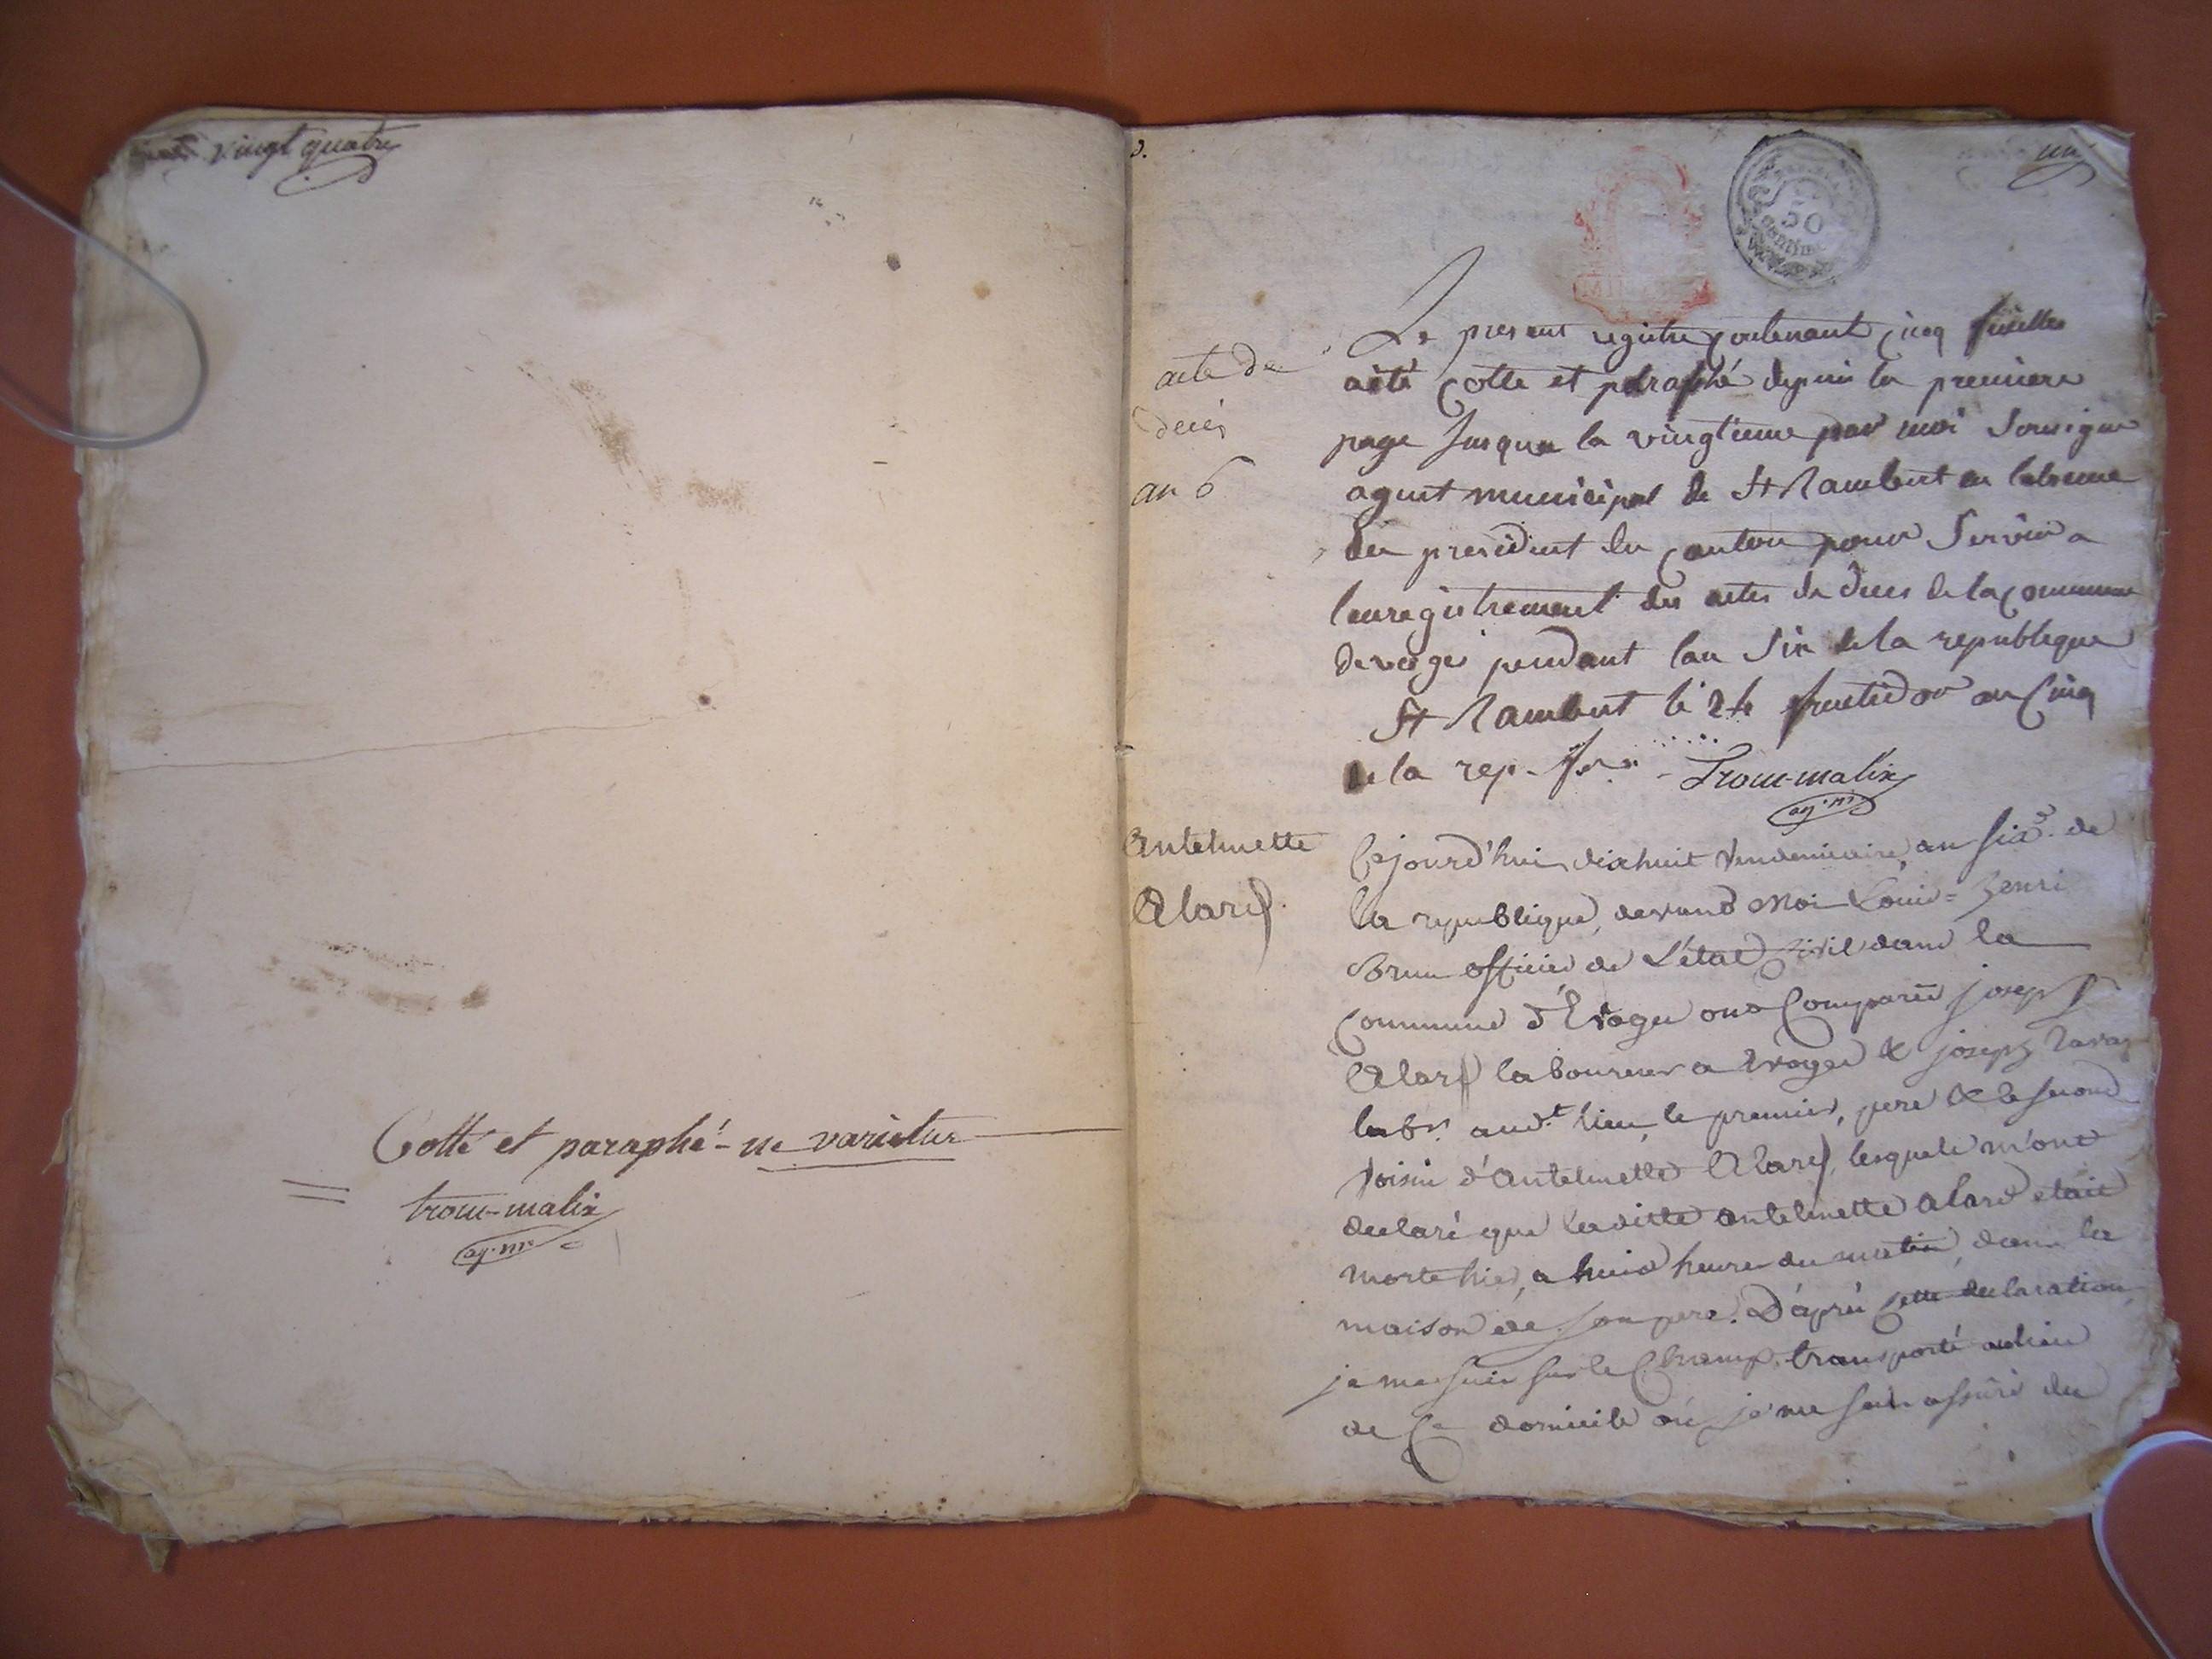 vingt quatre
Cotté et paraphé - ne varietur
trom-malix
ag. m.
un
50
acte de
decés
an 6
Le present registre contenant cinq fuielles
aété Cotte et paraphé depuis la premiere
page Jusqua la vingtieme par moi Sousigne
agent municipal de St Rambert en labsence
du president du canton pour Servir a
lenregistrement des actes de deces de la commune
devoges pendant lan Six de la republique
St Rambert le 24 fructidor an Cinq
de la rep. Trom-malix
ag. m.
Antelmette
Alard
Cejourd'hui dixhuit Vendemiaire, an six de
la republique, devant Moi Louis = henri
Brun officier de L'état Civil dans la
Commune d'Evoges ont Comparû joseph
Alard laboureur a Evoges & joseph
labr. aud.t lieu, le premier, pere & le second
voisin d'Antelmette Alard, lesquels m'ont
declaré que laditte antelmette alard etait
morte hier, a huit heures du matin, dans la
maison de son pere. D'après cette declaration,
je me suis sur le Champ, transporté aulieu
de Ce domicile où je me suis assûré du